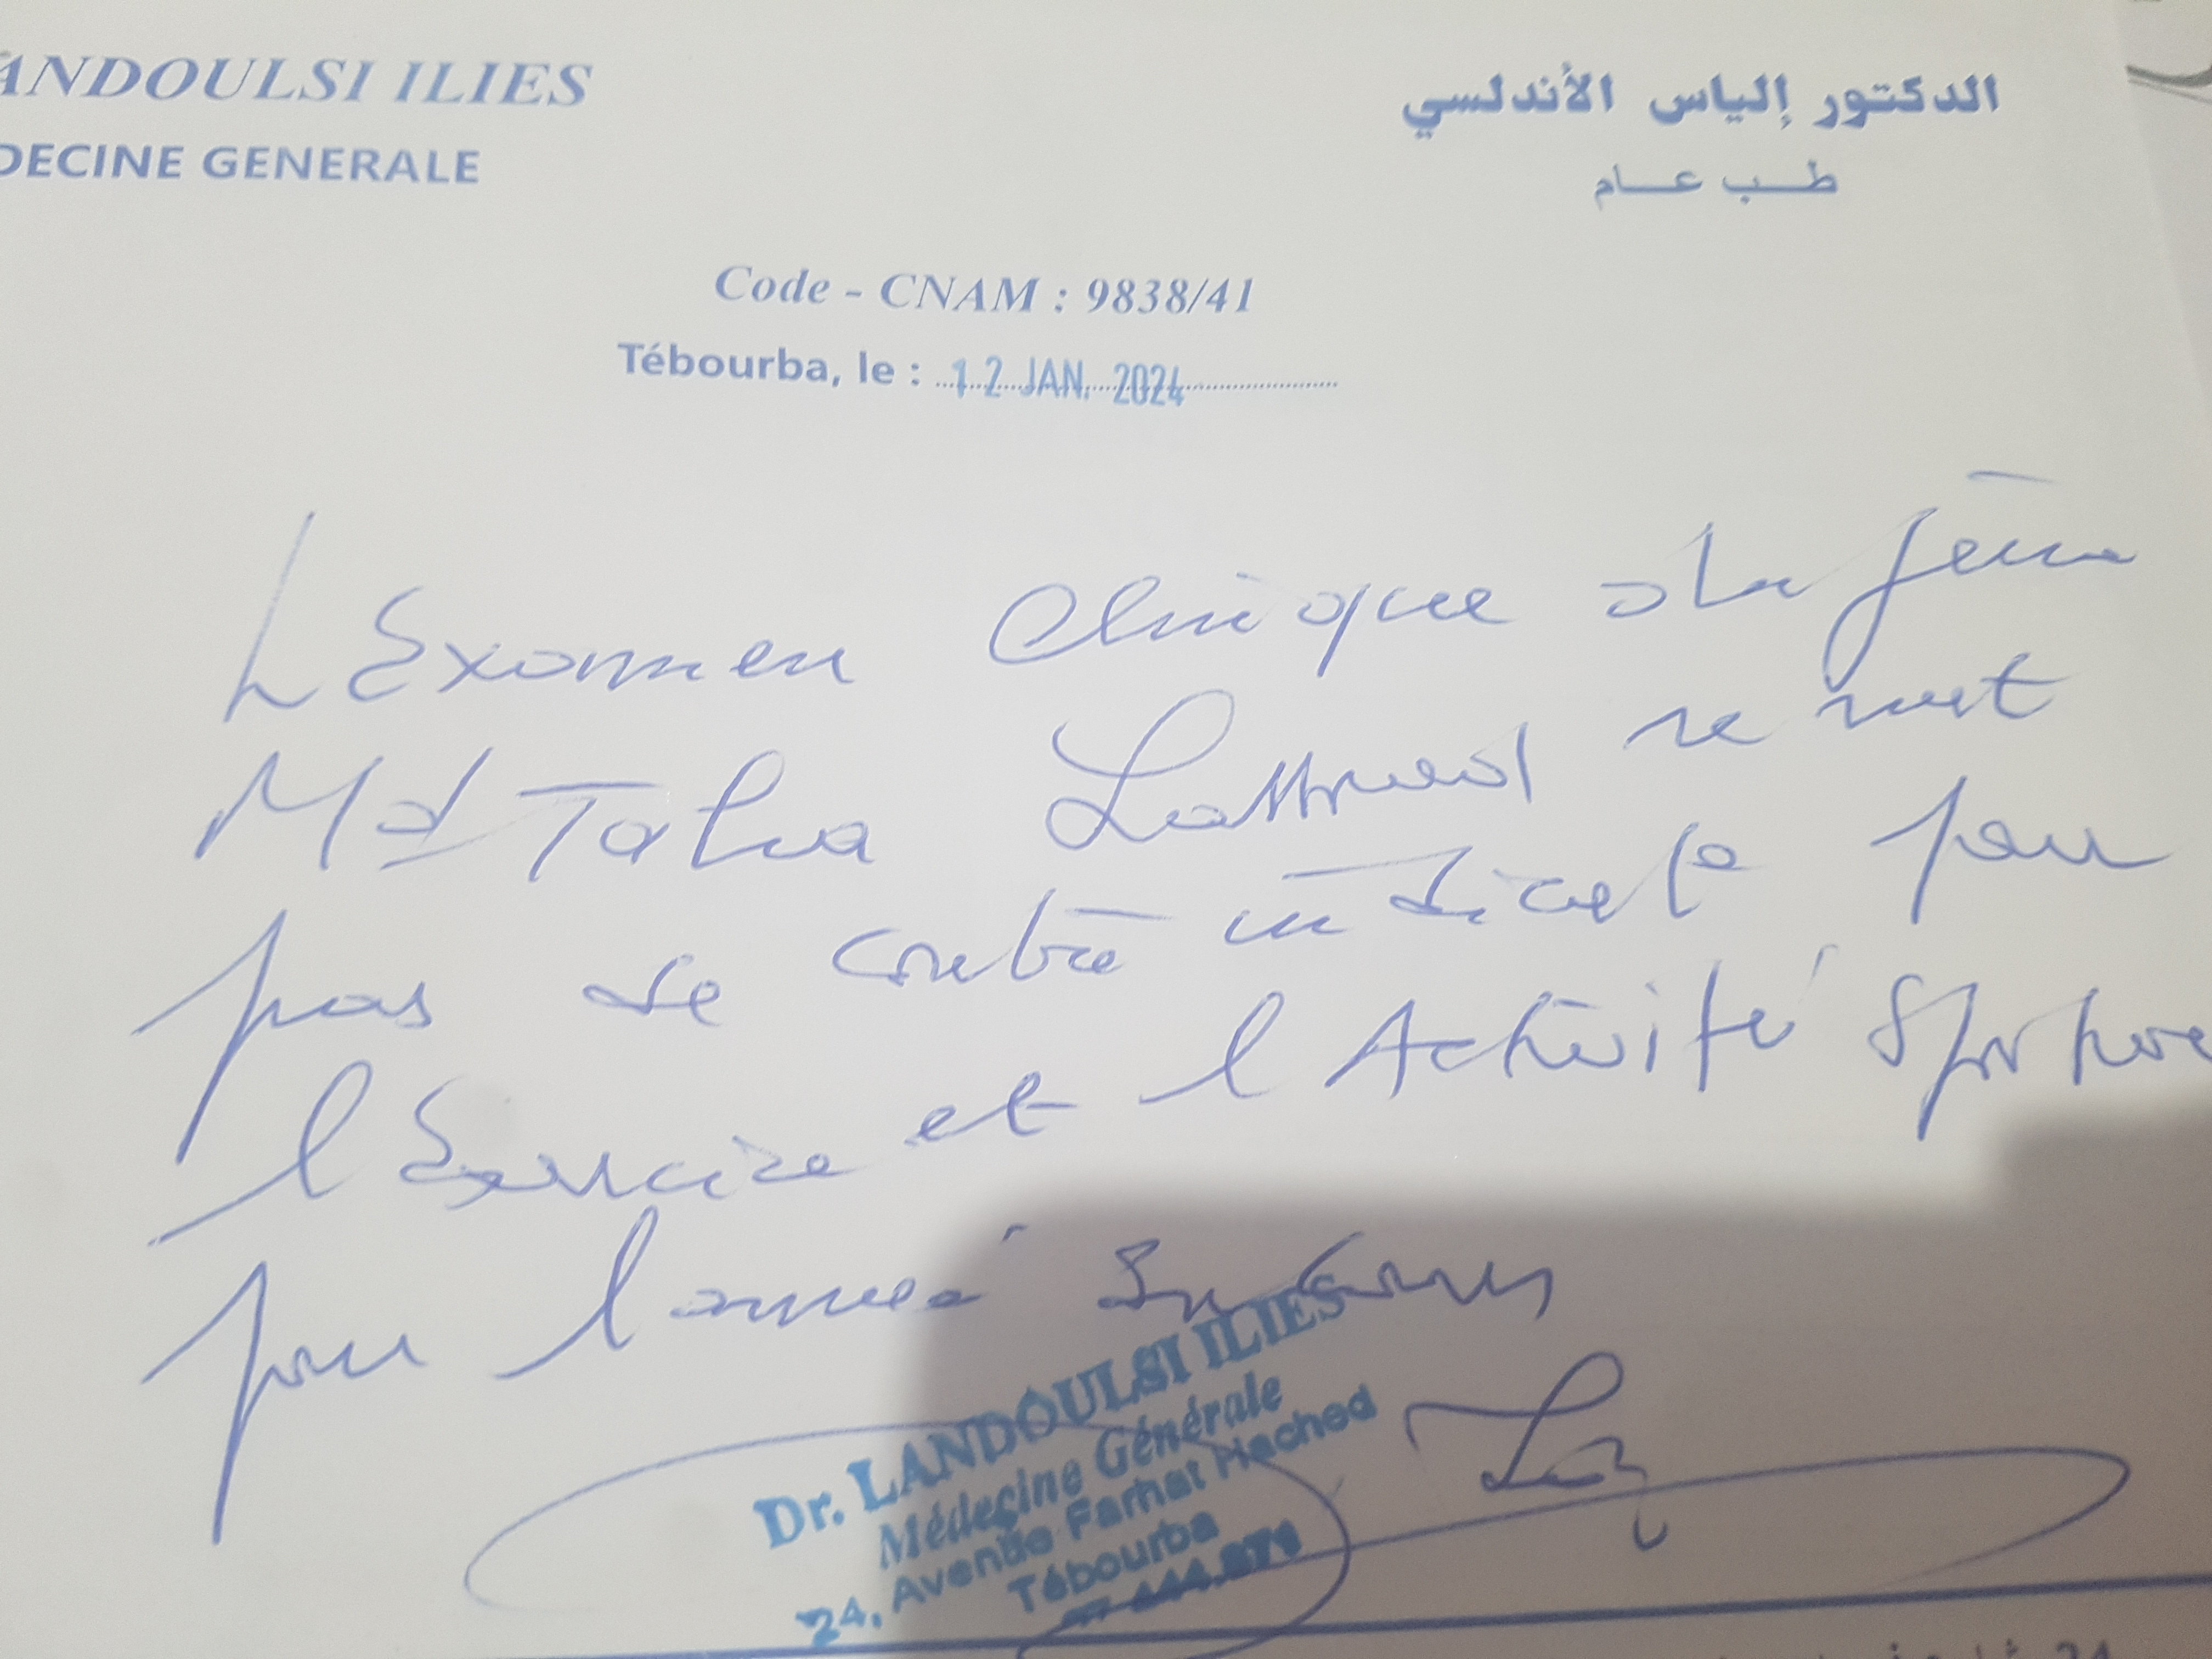 ANDOULSI ILIES
الدكتور إلياس الأندلسي
DECINE GENERALE
طب عام
Code - CNAM : 9838/41
Tébourba, le : 12 JAN. 2024
L Examen Clinique du jeune
Md Taha ne met
pas de contre indicat° pour
l Exercice et l Activité Sportive
pour l année
Dr. LANDOULSI ILIES
Médecine Générale
24, Avenue Farhat Hached
Tébourba